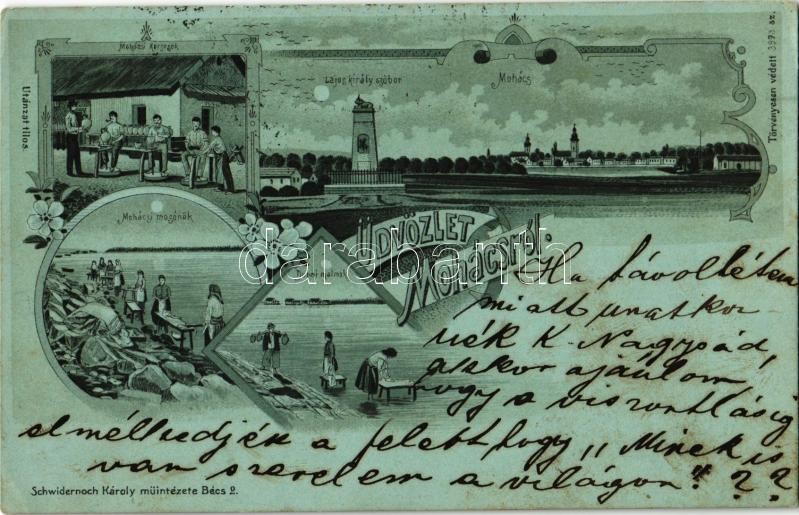 Mohácsi korsósok
Lajos király szobor
Mohács
Utánzat tilos.
Törvényesen védett 3973 sz.
Mohácsi mosónők
malmok
ÜDVÖZLET
Mohácsról.
darabanth.com
Ha távollétem
miatt unatkoz
nék K. Nagysád,
akkor ajánlom
hogy a viszontlásig
elmélkedjék a felett hogy „Minek is
van szerelem a világon"??
Schwidernoch Károly müintézete Bécs 2.